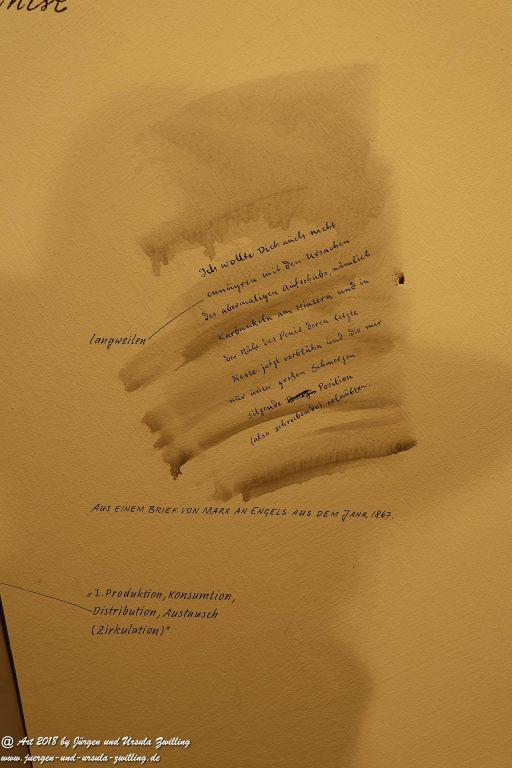 Ich wollte Dich auch nicht
ennüyren mit den Ursachen
des abermaligen Aufschubs, nämlich
Karbunkeln am Hintern und in
der Nähe des Penis, deren letzte
Reste jetzt verblühn und die mir
nur unter großen Schmerzen
sitzende Position
(also schreibende) erlaubten.
langweilen
AUS EINEM BRIEF VON MARX AN ENGELS AUS DEM JAHR 1867.
„1. Produktion, Konsumtion,
Distribution, Austausch
(Zirkulation)"
@ Art 2018 by Jürgen und Ursula Zwilling
www.juergen-und-ursula-zwilling.de